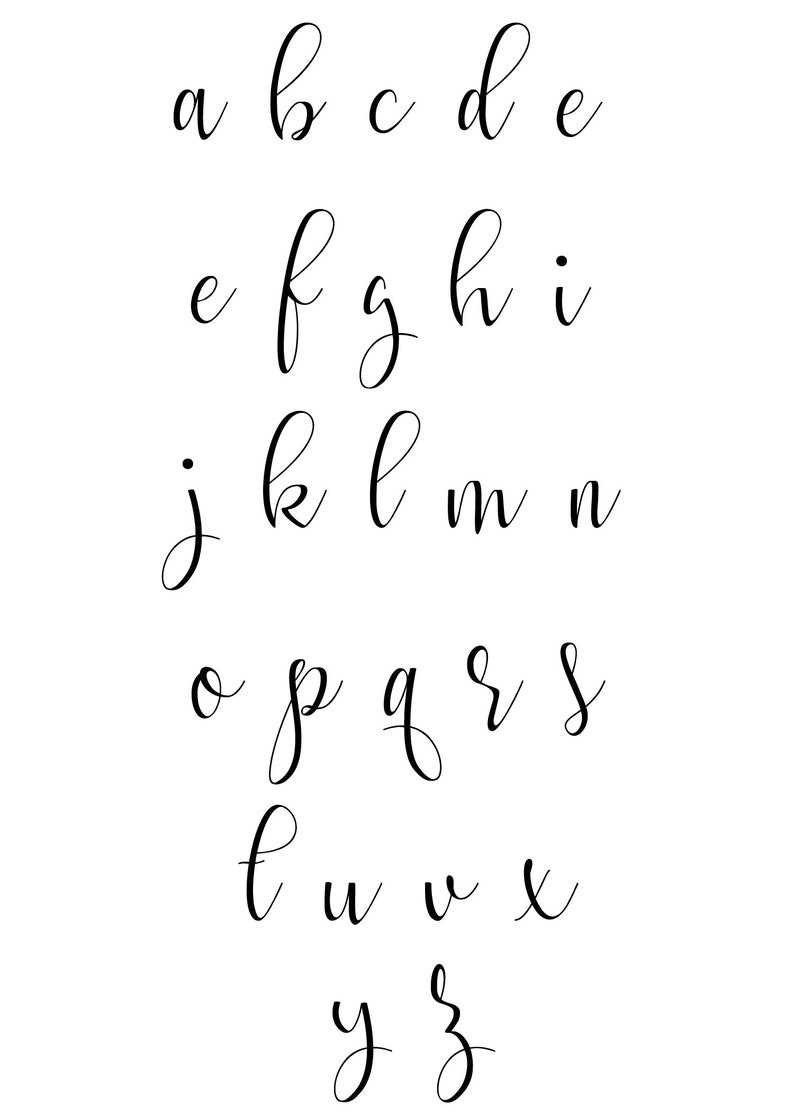 a b c d e
e f g h i
j k l m n
o p q r s
t u v x
y z